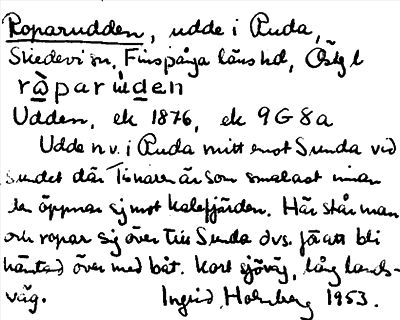 Roparudden, udde i Ruda,
Skedevi sn, Finspånga läns hd, Östg l
ròparùden
Udden, ek 1876, ek 9G8a
Udde n v. i Ruda mitt emot Sunda vid
sundet där Tisnaren är som smalast innan
den öppnar sig mot Kalefjärden. Här står man
och ropar sig över till Sunda dvs. för att bli
hämtad över med båt. Kort sjöväg, lång lands-
väg. Ingrid Holmberg 1953.